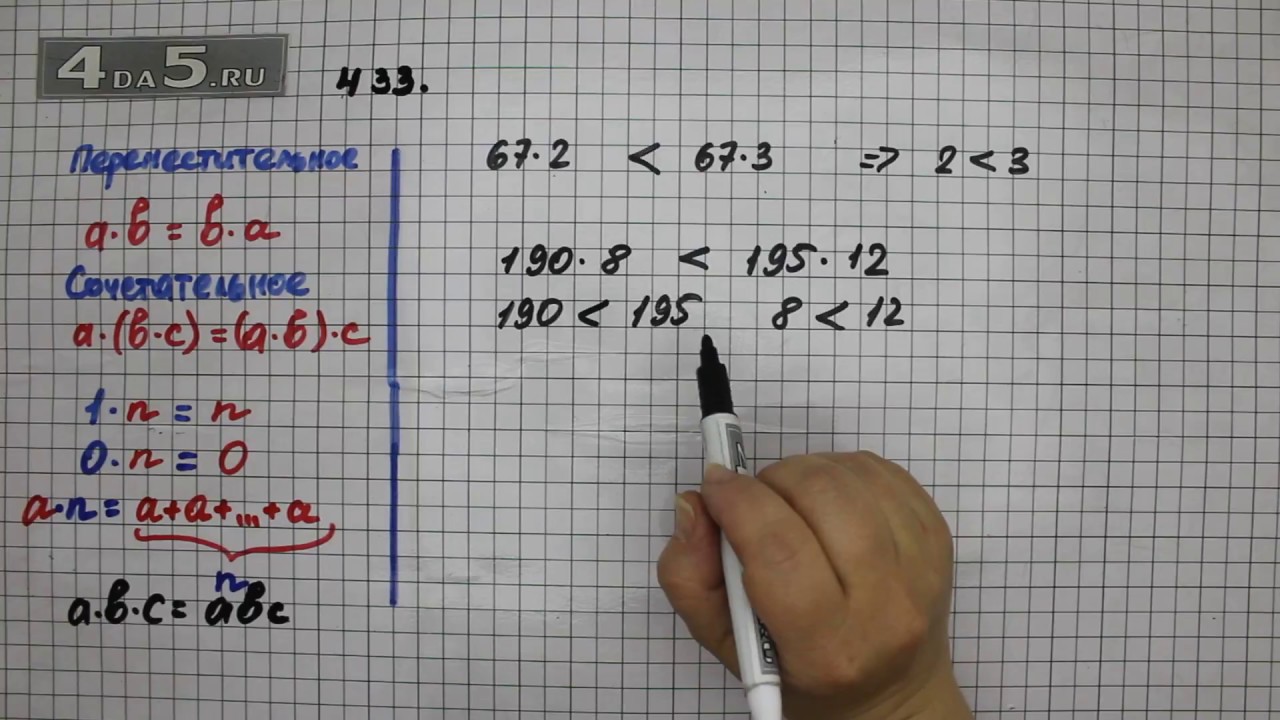 4DA5.RU
433.
Переместительное
a·b = b·a
Сочетательное
a·(b·c)=(a·b)·c
1·n = n
0·n = 0
a·n = a+a+...+a
n
a·b·c= abc
67·2 < 67·3 => 2<3
190·8 < 195·12
190 < 195 8 < 12